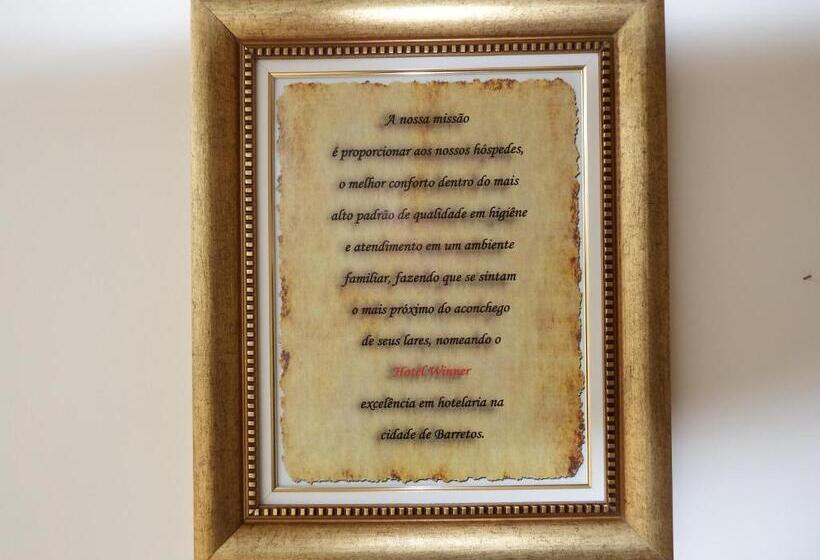 A nossa missão
é proporcionar aos nossos hóspedes,
o melhor conforto dentro do mais
alto padrão de qualidade em higiêne
e atendimento em um ambiente
familiar, fazendo que se sintam
o mais próximo do aconchego
de seus lares, nomeando o
Hotel Winner
excelência em hotelaria na
cidade de Barretos.